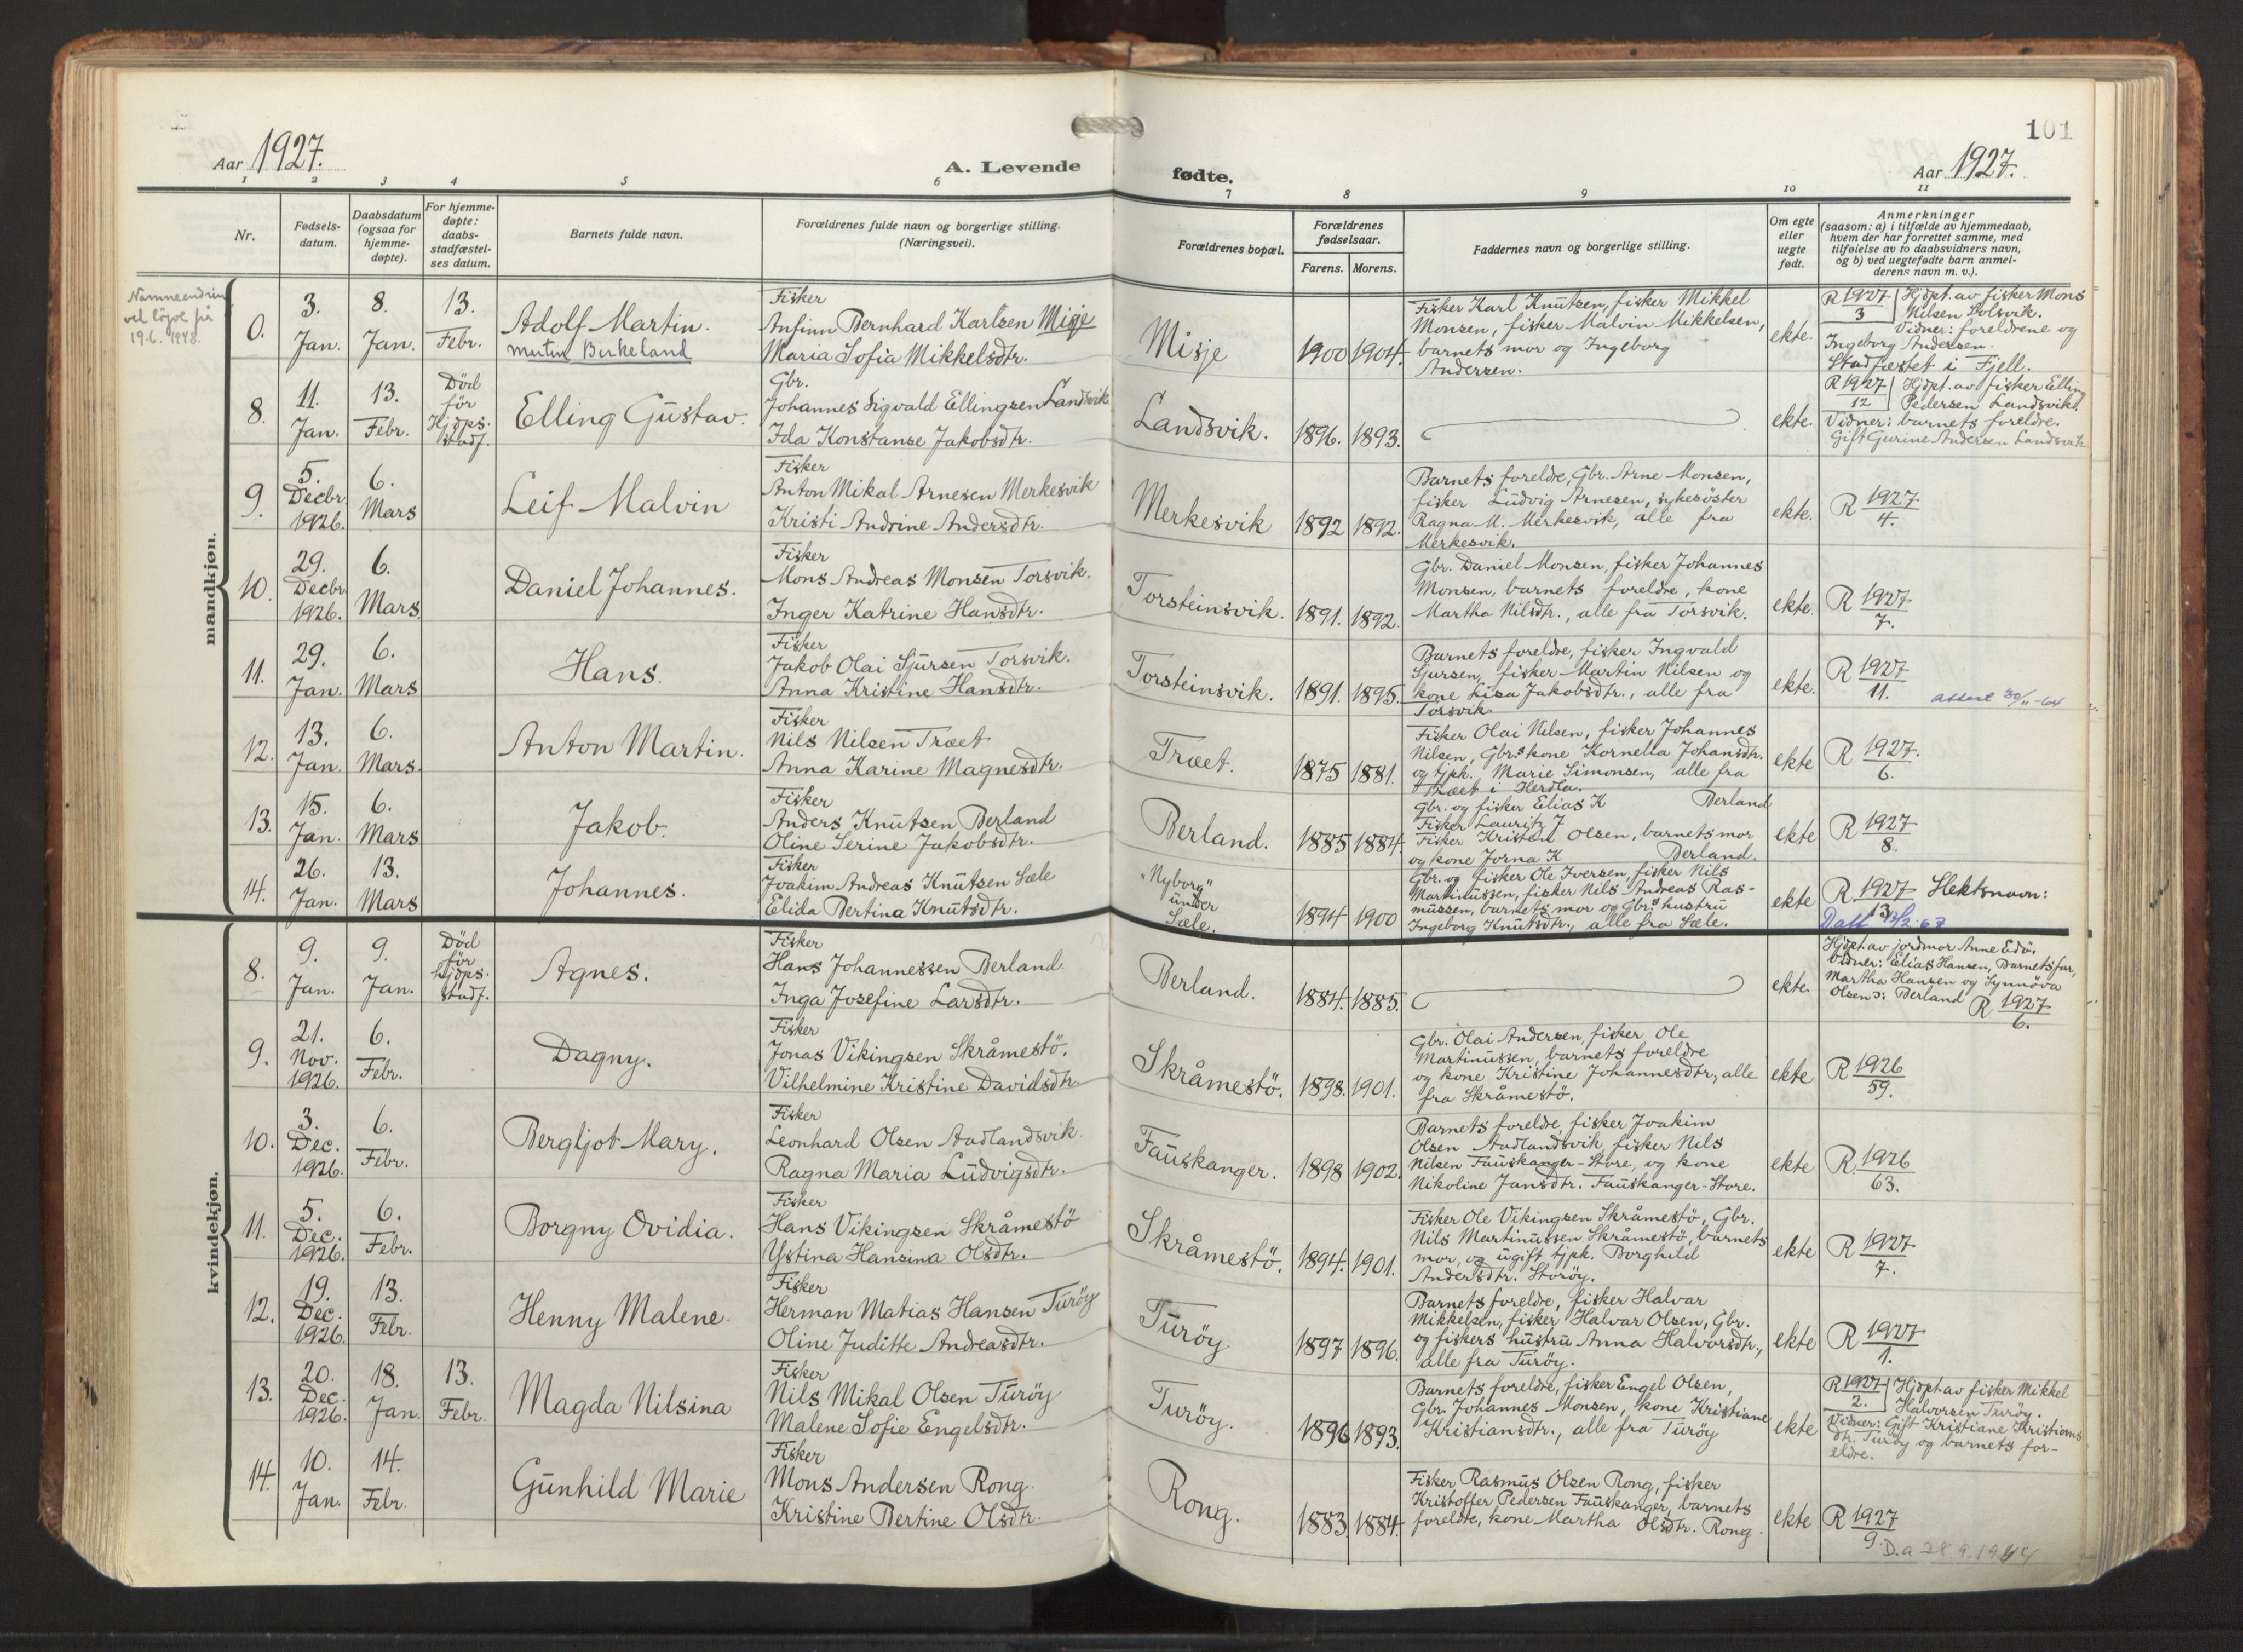 Aar 1927.
A. Levende
fødte.
101
Aar 1927.
1 2 3 4 5 6 7 8 9 10 11
Nr.
Fødsels-
datum.
Daabsdatum
(ogsaa for
hjemme-
døpte).
For hjemme-
døpte:
daabs-
stadfæstel-
ses datum.
Barnets fulde navn.
Forældrenes fulde navn og borgerlige stilling.
(Næringsvei).
Forældrenes bopæl.
Forældrenes
fødselsaar.
Farens. Morens.
Faddernes navn og borgerlige stilling.
Om egte
eller
uegte
født.
Anmerkninger
(saasom: a) i tilfælde av hjemmedaab,
hvem der har forrettet samme, med
tilføielse av to daabsvidners navn,
og b) ved uegtefødte barn anmel-
derens navn m. v.).
mandkjøn.
Namneendring
ved løyve frå
19.6. 1948.
0.
3.
Jan.
8.
Jan.
13.
Febr.
Adolf Martin.
Martin Birkeland
Fisker
Anfinn Bernhard Karlsen Misje
Maria Sofia Mikkelsdtr.
Misje
1900 1904.
Fisker Karl Knutsen, fisker Mikkel
Monsen, fisker Malvin Mikkelsen,
barnets mor og Ingeborg
Andersen.
ekte.
R 1927
3
Hjdpt. av fisker Mons
Nilsen Solsvik.
Vidner: foreldrene og
Ingeborg Andersen.
Stadfæstet i Fjell.
8.
11.
Jan.
13.
Febr.
Død
før
Hjdps.
stadf.
Elling Gustav.
Gbr.
Johannes Sigvald Ellingsen Landsvik
Ida Konstanse Jakobsdtr.
Landsvik.
1896. 1893.
ekte.
R 1927
12
Hjdpt. av fisker Elling
Pedersen Landsvik.
Vidner: barnets foreldre.
Gift Gurine Andersen Landsvik
9.
5.
Decbr
1926.
6.
Mars
Leif Malvin
Fisker
Anton Mikal Arnesen Merkesvik
Kristi Andrine Andersdtr.
Merkesvik
1892 1892.
Barnets foreldre, Gbr. Arne Monsen,
fisker Ludvig Arnesen, sykesöster
Ragna M. Merkesvik, alle fra
Merkesvik.
ekte.
R 1927
4.
10.
29.
Decbr
1926.
6.
Mars.
Daniel Johannes.
Fisker
Mons Andreas Monsen Torsvik.
Inger Katrine Hansdtr.
Torsteinsvik.
1891. 1892.
Gbr. Daniel Monsen, fisker Johannes
Monsen, barnets foreldre, kone
Martha Nilsdtr., alle fra Torsvik.
ekte.
R 1927
7.
11.
29.
Jan.
6.
Mars
Hans.
Fisker
Jakob Olai Sjursen Torsvik.
Anna Kristine Hansdtr.
Torsteinsvik.
1891. 1895.
Barnets foreldre, fisker Ingvald
Sjursen, fisker Martin Nilsen og
kone Lisa Jakobsdtr., alle fra
Torsvik.
ekte.
R 1927
11.
attest 30/11-64
12.
13.
Jan.
6.
Mars.
Anton Martin.
Fisker
Nils Nilsen Træet
Anna Karine Magnesdtr.
Træet.
1875 1881.
Fisker Olai Nilsen, fisker Johannes
Nilsen, Gbr.s kone Kornelia Johansdtr.
og tjpk. Marie Simonsen, alle fra
Træet i Herdla.
ekte
R 1927.
6.
13.
15.
Jan.
6.
Mars
Jakob.
Fisker
Anders Knutsen Berland
Oline Serine Jakobsdtr.
Berland.
1885 1884.
Gbr. og fisker Elias K Berland
Fisker Lauritz J
Fisker Kristen Olsen, barnets mor
og kone Jorna K Berland.
ekte
R 1927
8.
14.
26.
Jan.
13.
Mars
Johannes.
Fisker
Joakim Andreas Knutsen Sæle
Elida Bertina Knutsdtr.
"Nyborg"
under
Sæle.
1894 1900
Gbr. og fisker Ole Iversen, fisker Nils
Martinussen, fisker Nils Andreas Ras-
mussen, barnets mor og Gbr.s hustru
Ingeborg Knutsdtr., alle fra Sæle.
ekte
R 1927
13
Slektsnavn:
kvindekjøn.
8.
9.
Jan.
9.
Jan.
Død
før
hjdps.
stadf.
Agnes.
Fisker
Hans Johannessen Berland.
Inga Josefine Larsdtr.
Berland.
1884. 1885.
ekte.
Hjdpt. av jordmor Anne Edö.
Vidner: Elias Hansen, Barnets far,
Martha Hansen og Synnöva
Olsen: Berland R 1927
6.
9.
21.
Nov.
1926.
6.
Febr.
Dagny.
Fisker
Jonas Vikingsen Skråmestö.
Vilhelmine Kristine Davidsdtr.
Skråmestö.
1898. 1901.
Gbr. Olai Andersen, fisker Ole
Martinussen, barnets foreldre
og kone Kristine Johannesdtr, alle
fra Skråmestö.
ekte
R 1926
59.
10.
3.
Dec.
1926.
6.
Febr.
Bergljot Mary.
Fisker
Leonhard Olsen Aadlandsvik.
Ragna Maria Ludvigsdtr.
Fauskanger.
1898 1902.
Barnets foreldre, fisker Joakim
Olsen Aadlandsvik, fisker Nils
Nilsen Fauskanger-Store, og kone
Nikoline Jansdtr. Fauskanger-Store.
ekte
R 1926
63.
11.
5.
Dec.
1926.
6.
Febr.
Borgny Ovidia.
Fisker
Hans Vikingsen Skråmestö
Ystina Hansina Olsdtr.
Skråmestö.
1894. 1901.
Fisker Ole Vikingsen Skråmestö, Gbr.
Nils Martinussen Skråmestö, barnets
mor, og ugift tjpk. Borghild
Andersdtr. Storöy.
ekte
R 1927
7.
12.
19.
Dec.
1926.
13.
Febr.
Henny Malene.
Fisker
Herman Matias Hansen Turöy
Oline Juditte Andreasdtr.
Turöy
1897 1896.
Barnets foreldre, fisker Halvar
Mikkelsen, fisker Halvar Olsen, Gbr.
og fiskers hustru Anna Halvorsdtr.,
alle fra Turöy.
ekte
R 1927
1.
13.
20.
Dec.
1926.
18.
Jan.
13.
Febr.
Magda Nilsina
Fisker
Nils Mikal Olsen Turöy
Malene Sofie Engelsdtr.
Turöy.
1896 1893.
Barnets foreldre, fisker Engel Olsen,
Gbr. Johannes Monsen, kone Kristiane
Kristiansdtr., alle fra Turöy
ekte
R 1927
2.
Hjdpt av fisker Mikkel
Halvorsen Turöy.
Vidner: Gift Kristiane Kristians
dtr. Turöy og barnets for-
eldre.
14.
10.
Jan.
14.
Febr.
Gunhild Marie
Fisker
Mons Andersen Rong.
Kristine Bertine Olsdtr.
Rong.
1883. 1884.
Fisker Rasmus Olsen Rong, fisker
Kristoffer Pedersen Fauskanger, barnets
foreldre, kone Martha Olsdtr. Rong.
ekte
R 1927
9.
D.a 28.9.1944